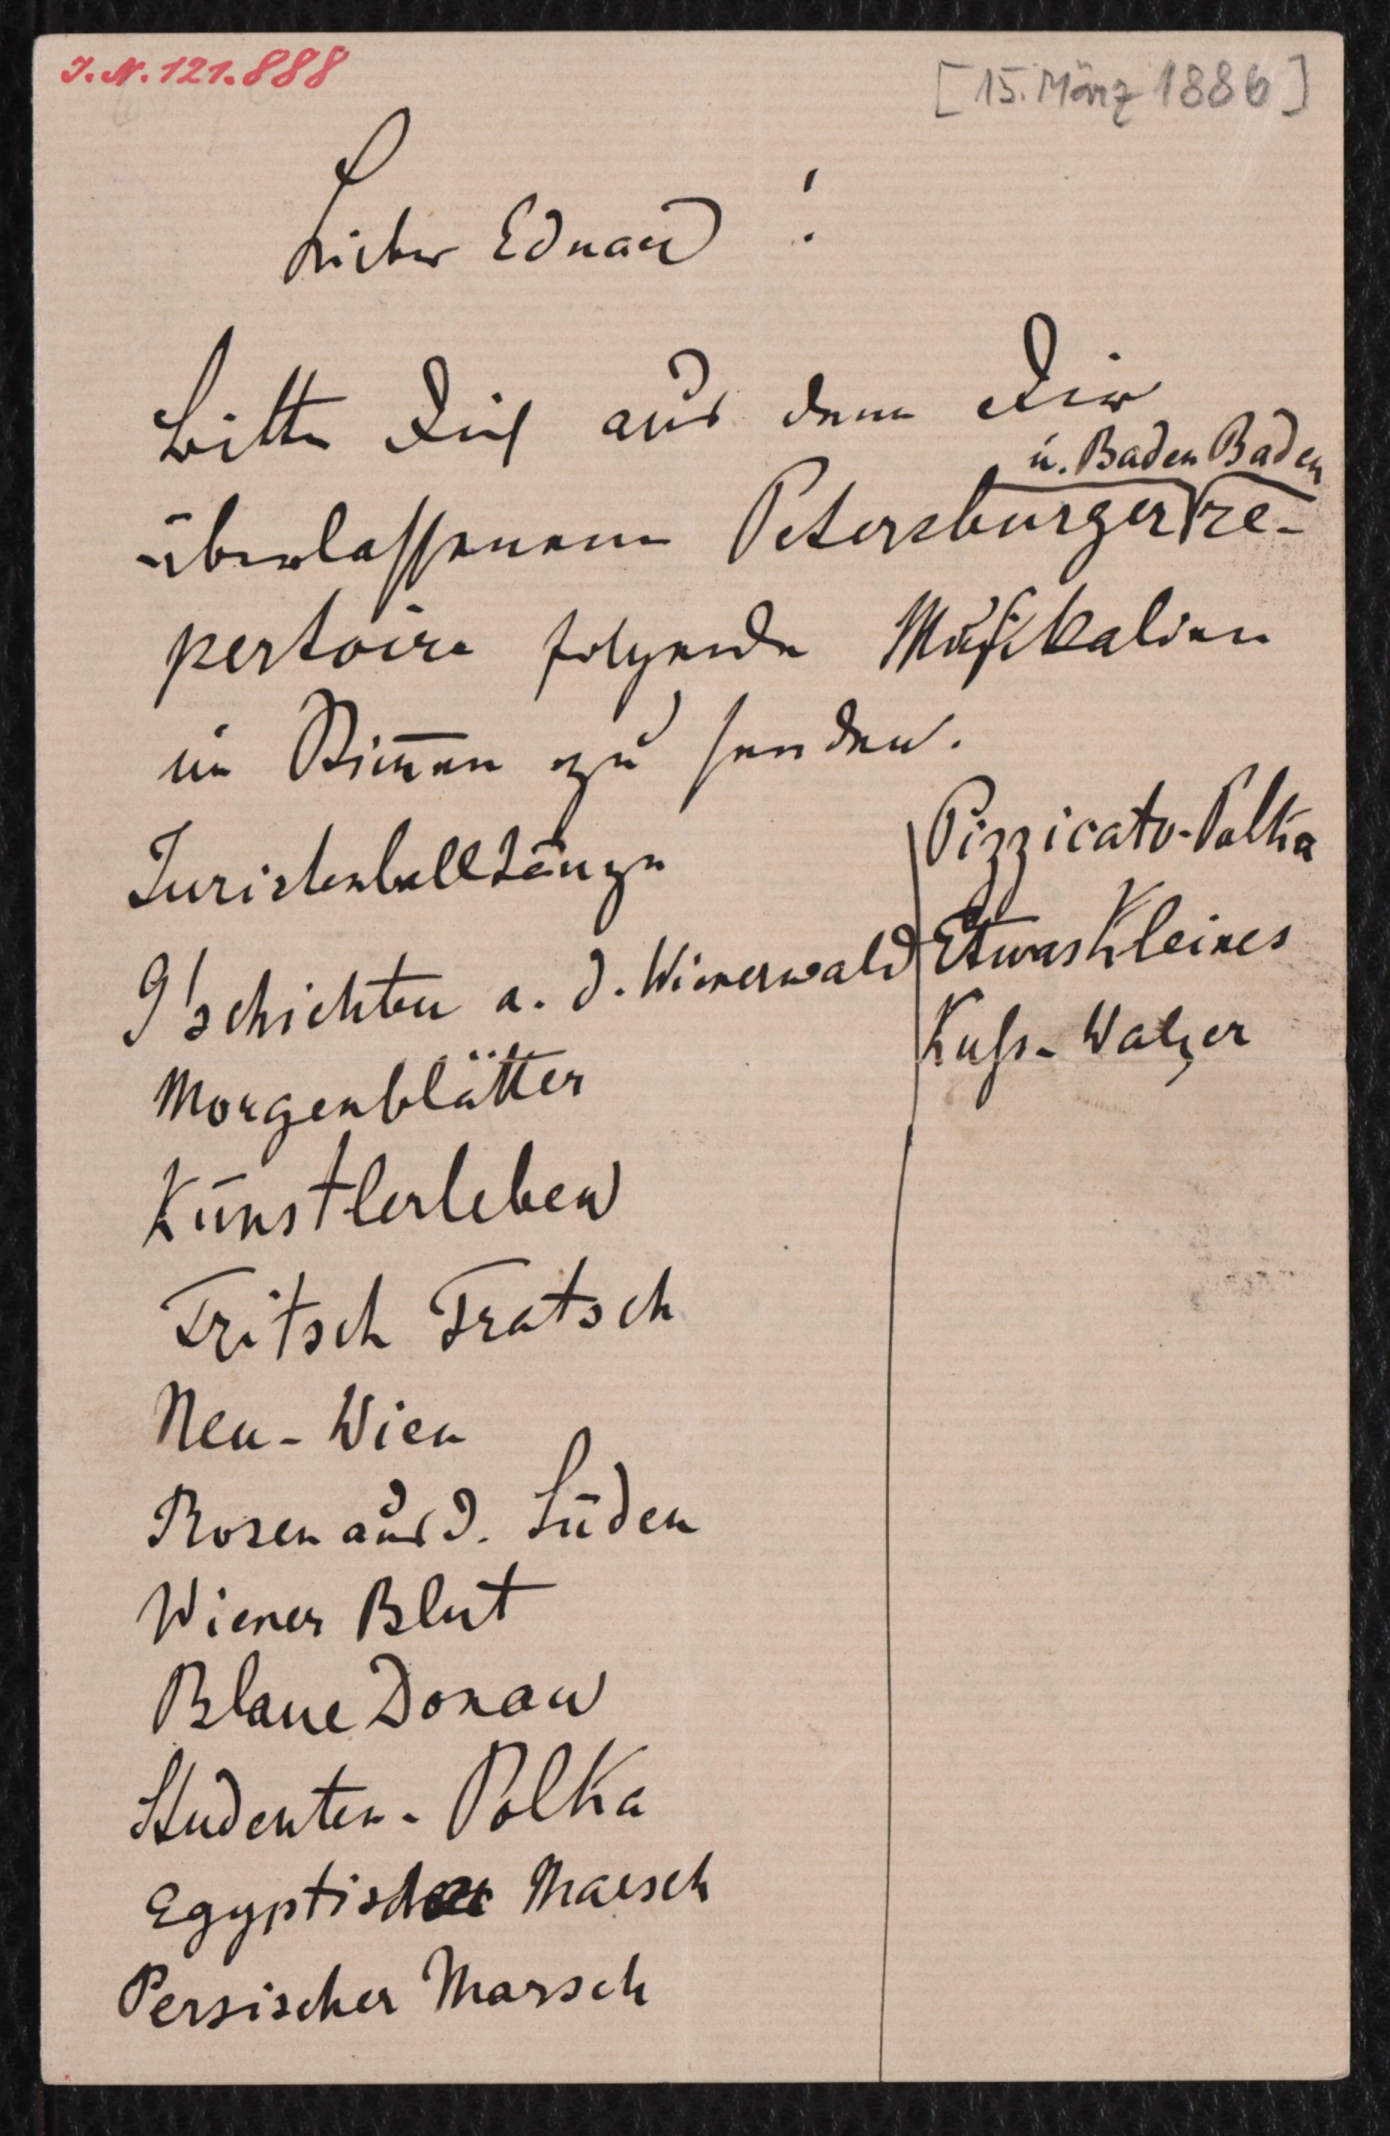 J. N. 121.888
[15. März 1886]
Lieber Eduard!
bitte Dich aus dem Dir
u. Baden Baden
überlassenem Petersburger re-
pertoire folgende Musikalien
in Stim̅en zu senden.
Juristenballtänze
G'schichten a. d. Wienerwald
Morgenblätter
Künstlerleben
Tritsch Tratsch
Neu-Wien
Rosen aus d. Süden
Wiener Blut
Blaue Donau
Studenten-Polka
Egyptischer Marsch
Persischer Marsch
Pizzicato-Polka
Etwas Kleines
Kuss-Walzer